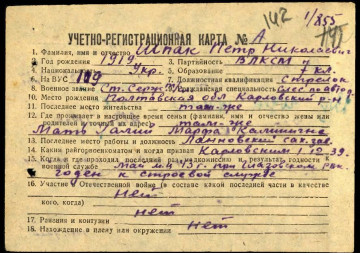 142 1/855
УЧЕТНО-РЕГИСТРАЦИОННАЯ КАРТА № А
1. Фамилия, имя и отчество Шпак Петр Николаевич
2. Год рождения 1919 3. Партийность ВЛКСМ
4. Национальность Укр. 5. Образование 7 кл.
6. № ВУС 119 7. Должностная квалификация стрелок
8. Военное звание Ст. Серж. 9. Гражданская специальность
10. Место рождения Полтавская обл Карловский р-н
11. Последнее место жительства там-же
12. Где проживает в настоящее время семья (фамилия, имя и отчество жены или
родителей и точный их адрес) там-же
Мать Галий Марфа Калинична
13. Последнее место работы и должность Ланновский сах. зав.
14. Каким райгорвоенкоматом и когда призван Карловским 1.12.39.
15. Когда и где проходил последний раз медкомиссию и результат годности к
военной службе Май м-ц 45 г. при
годен к строевой службе
16. Участие в Отечественной войне (в составе какой последней части в качестве
кого, когда) нет
нет
17. Ранения и контузии нет
18. Нахождение в плену или окружении